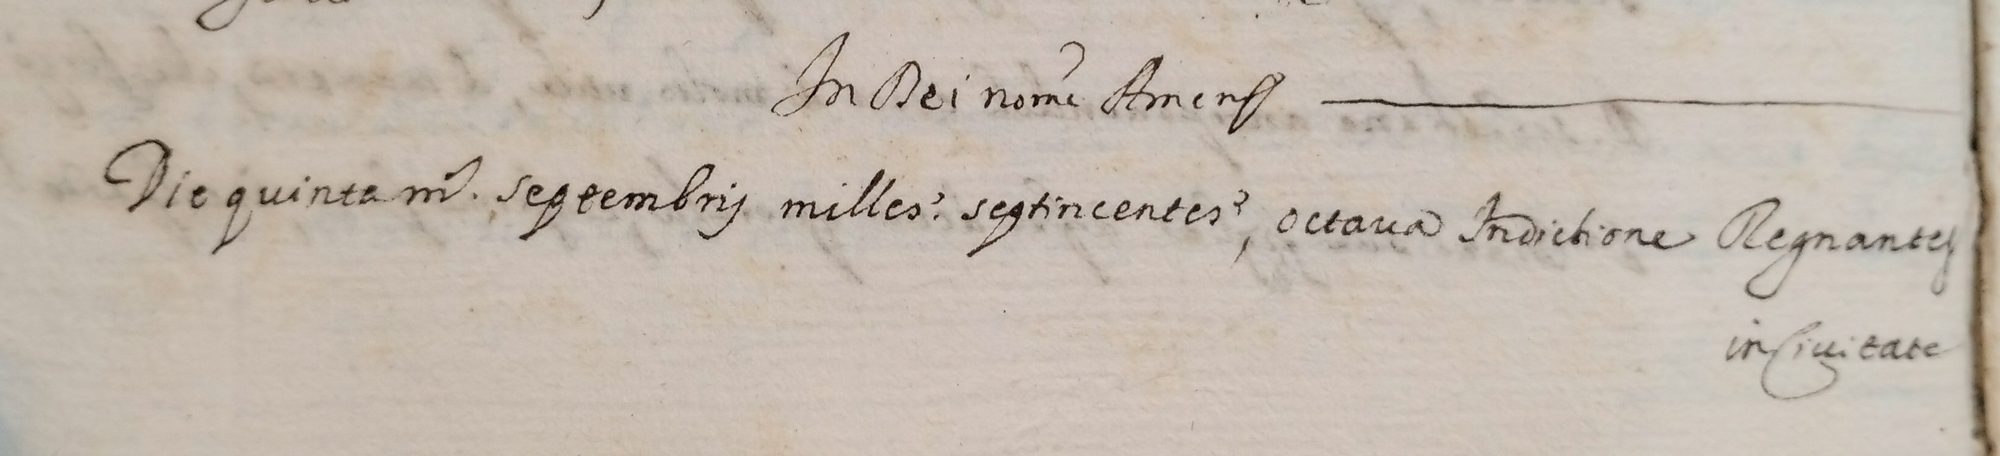 In Dei nomẽ Amen
Die quinta m.̃ Septembrij milles.º septincentes.º, octaua Indictione Regnante
in Ciuitate